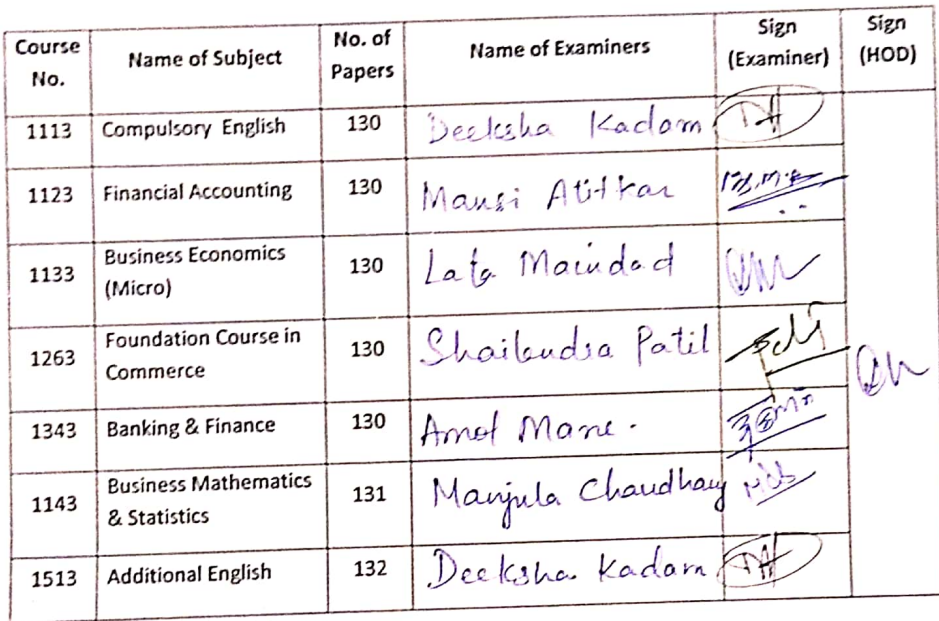 Course No. Name of Subject No. of Papers Name of Examiners Sign (Examiner) Sign (HOD)
1113 Compulsory English 130 Deeksha Kadam
1123 Financial Accounting 130 Mansi
1133 Business Economics (Micro) 130 Lata Maindad
1263 Foundation Course in Commerce 130 Shailendra Patil
1343 Banking & Finance 130 Amol Mane.
1143 Business Mathematics & Statistics 131 Manjula Chaudhary
1513 Additional English 132 Deeksha Kadam